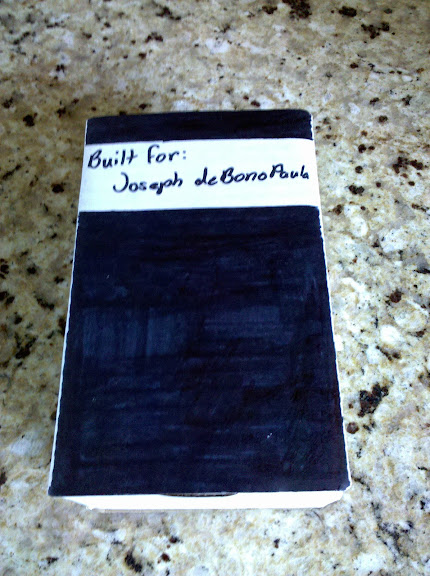 Built for:
Joseph deBonoPaula